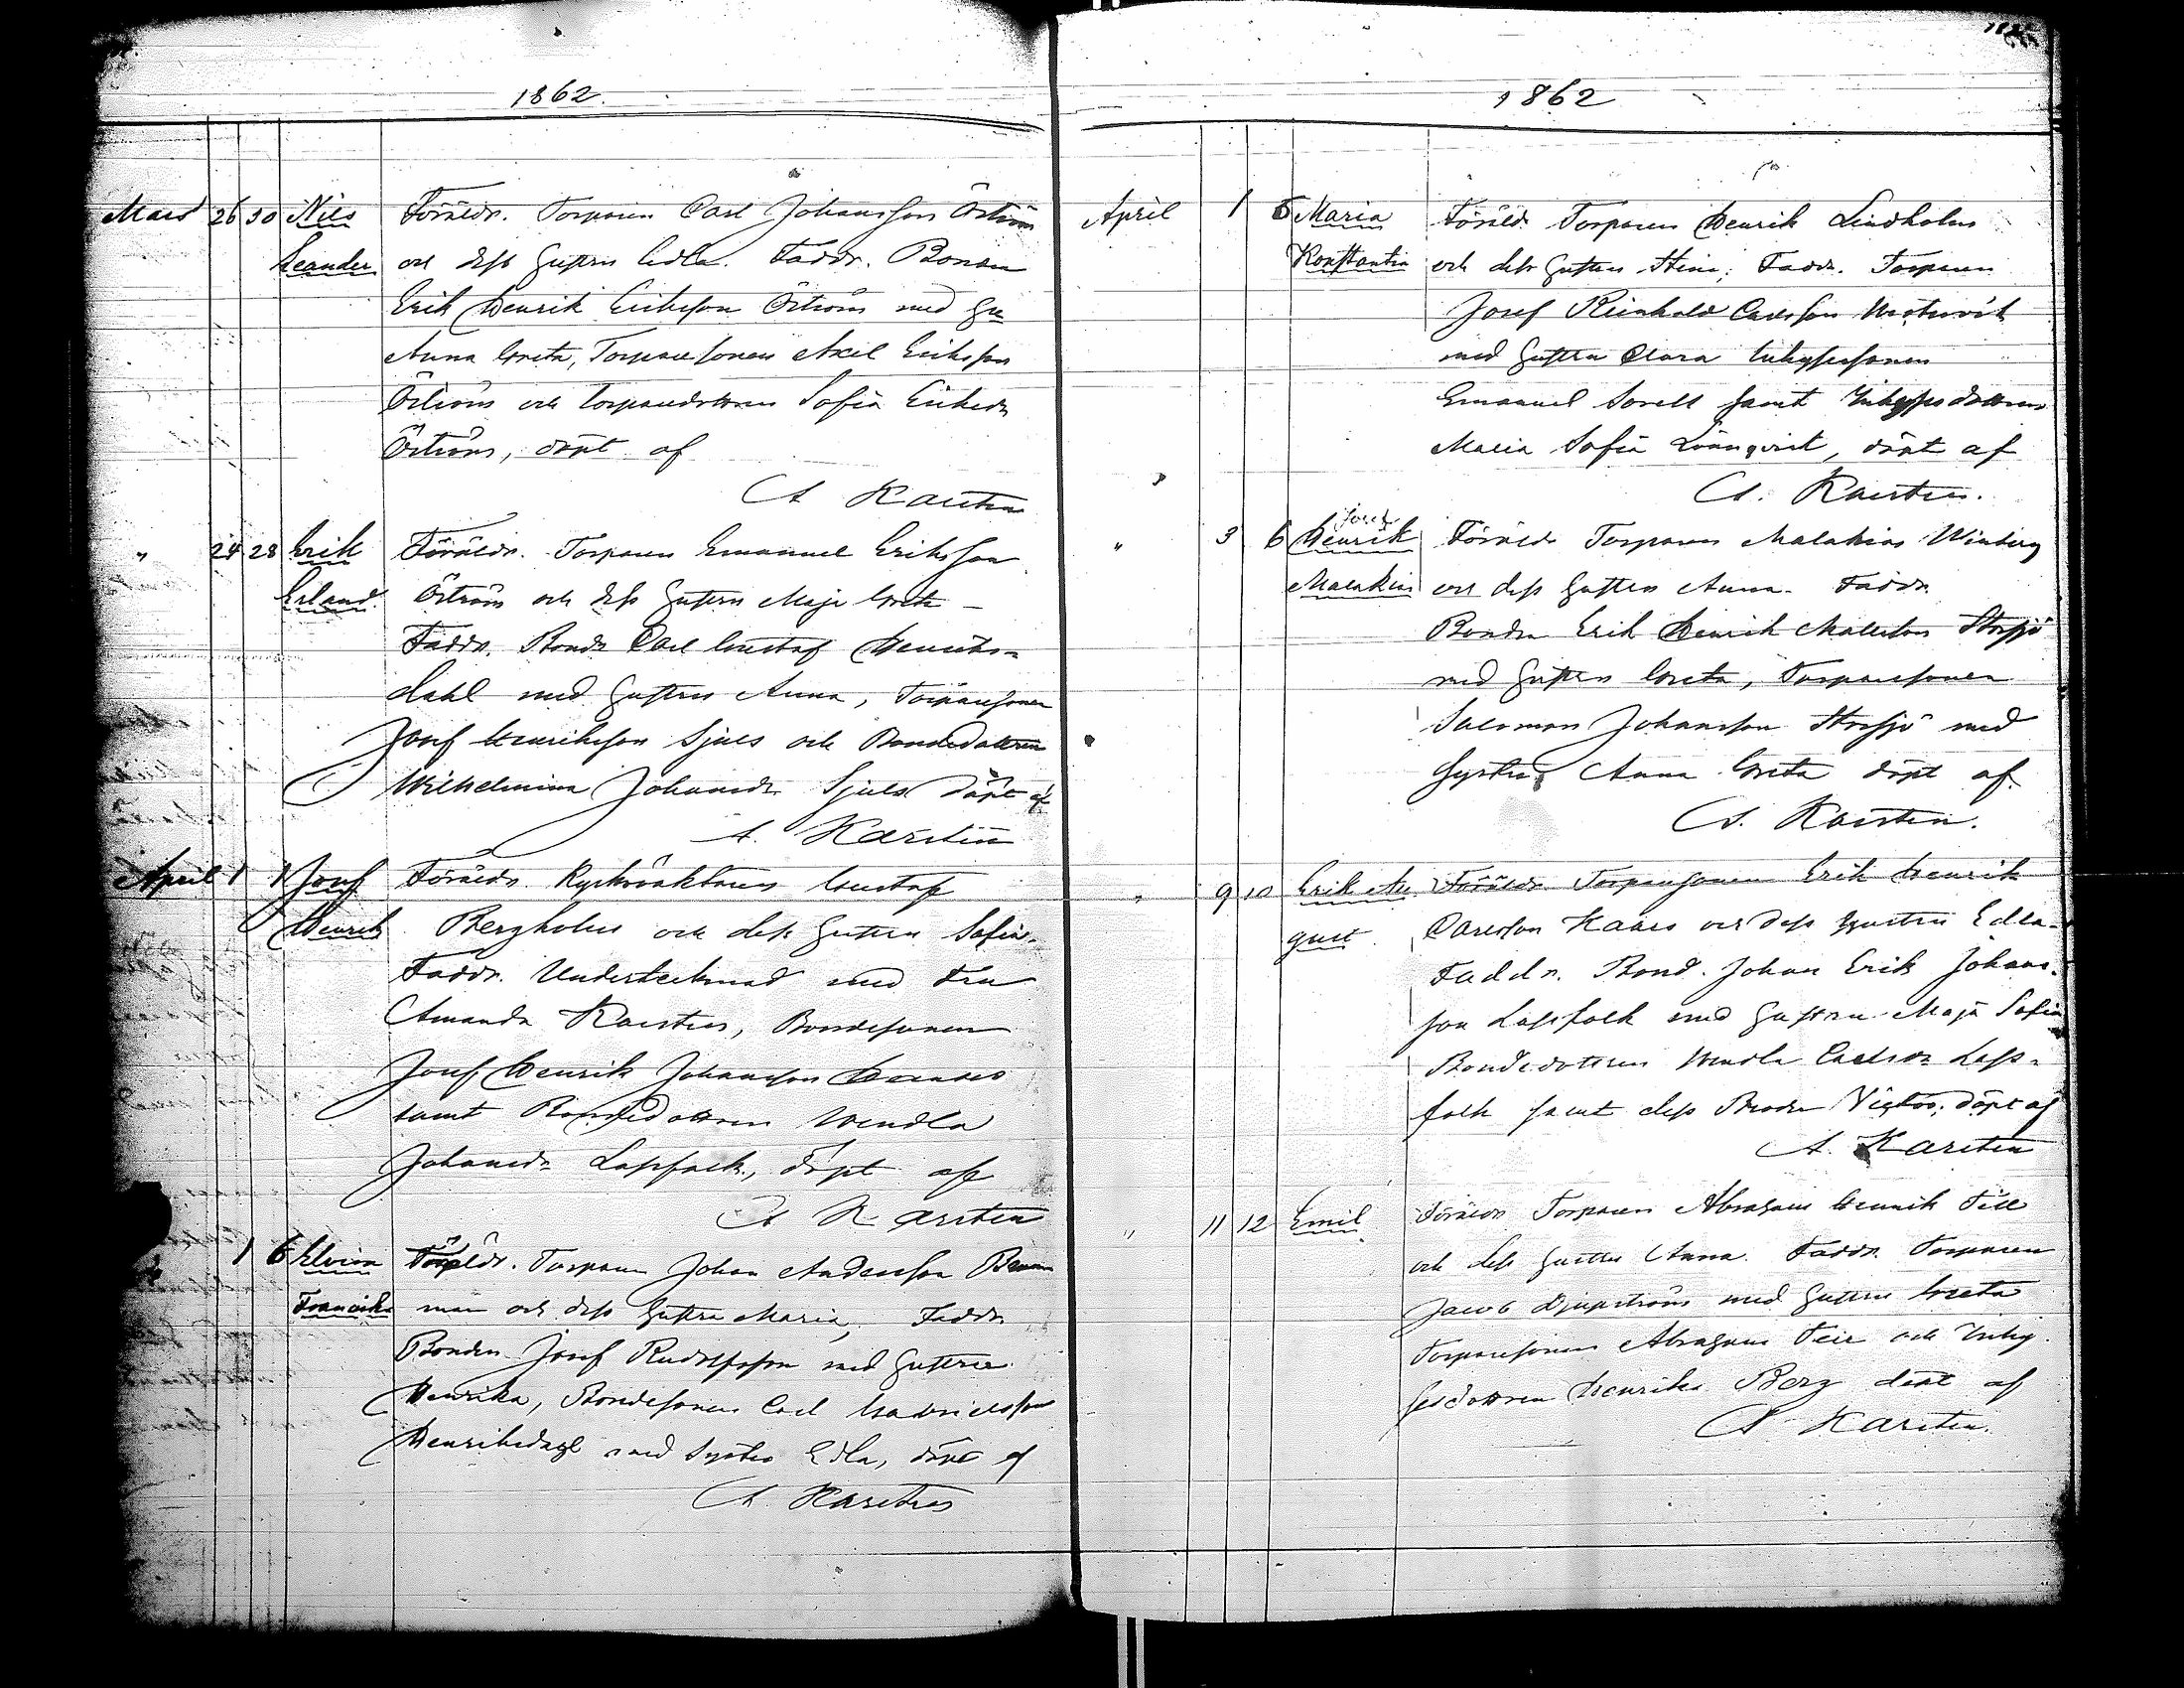 1862.
Mars 26 30 Nils Föräldr. Torparen Carl Johansson Öström
Leander och dess hustru Edla. Faddr. Bonden
Erik Henrik Eriksson Öström med hu
Anna Greta, Torparesonen Axel Eriksson
Öström och torparedottren Sofia Eriksdr
Öström, döpt af
A Karsten
" 24 28 Erik Föräldr. Torparen Emanuel Eriksson
Erland. Öström och dess hustru Maja Greta –
Faddr. Bond. Carl Gustaf Henriks-
dahl med hustru Anna, Torparesonen
Josef Henriksson Sjuls och Bondedottren
Wilhelmina Johansdr Sjuls döpt af
A. Karsten
April 1 1 Josef Föräldr. Kyrkväktaren Gustaf
Henrik Bergholm och dess hustru Sofia.
Faddr. Undertecknad med Fru
Amanda Karsten, Bondesonen
Josef Henrik Johansson
samt Bondedottren Wendla
Johansdr Lassfolk, döpt af
A Karsten
1 6 Elvira Föräldr. Torparen Johan Andersson
Franciska man och dess hustru Maria, Faddr.
Bonden Josef Rudolfsson med hustru
Henrika, Bondesonen Carl Gabrielsson
Henriksdahl med Syster Edla, döpt af
A. Karsten
1862
April 1 6 Maria Föräld. Torparen Henrik Lindholm
Konstantia och dess hustru Stina; Faddr. Torparen
Josef Reinhold Carlsson
med hustru Clara Inhysessonen
Emanuel Sorell samt Inhysesdottren
Maria Sofia Lönnqvist, döpt af
A. Karsten.
Josef
" 3 6 Henrik Föräldr Torparen Malakias Winberg
Malakias och dess hustru Anna. Faddr.
Bonden Erik Henrik Mattsson Storsjö
med hustru Greta, Torparesonen
Salomon Johansson Storsjö med
Syster Anna Greta döpt af
A. Karsten.
" 9 10 Erik Au Föräldr. Torparesonen Erik Henrik
gust. Carlsson och dess hustru Edla.
Faddr. Bond. Johan Erik Johans-
son Lassfolk med hustru Maja Sofia
Bondedottren Wendla Carlsdr Lass-
folk samt dess Broder Viktor, döpt af
A. Karsten
" 11 12 Emil Föräldr Torparen Abraham Henrik
och dess hustru Anna. Faddr. Torparen
Jacob Djupström med hustru Greta
Torparesonen Abraham och Inhy-
sesdottren Henrika Berg döpt af
A Karsten.